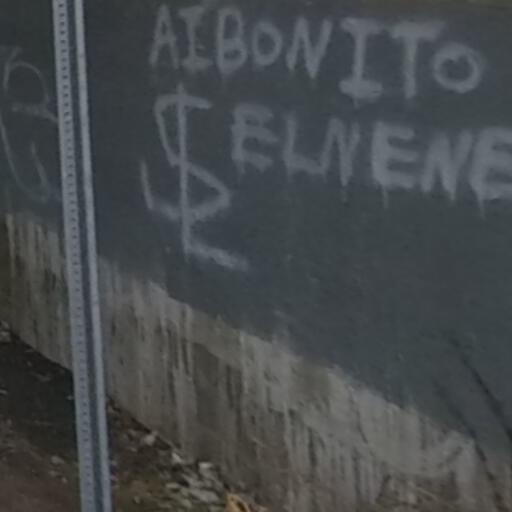 AIBONITO
$ ELNENE